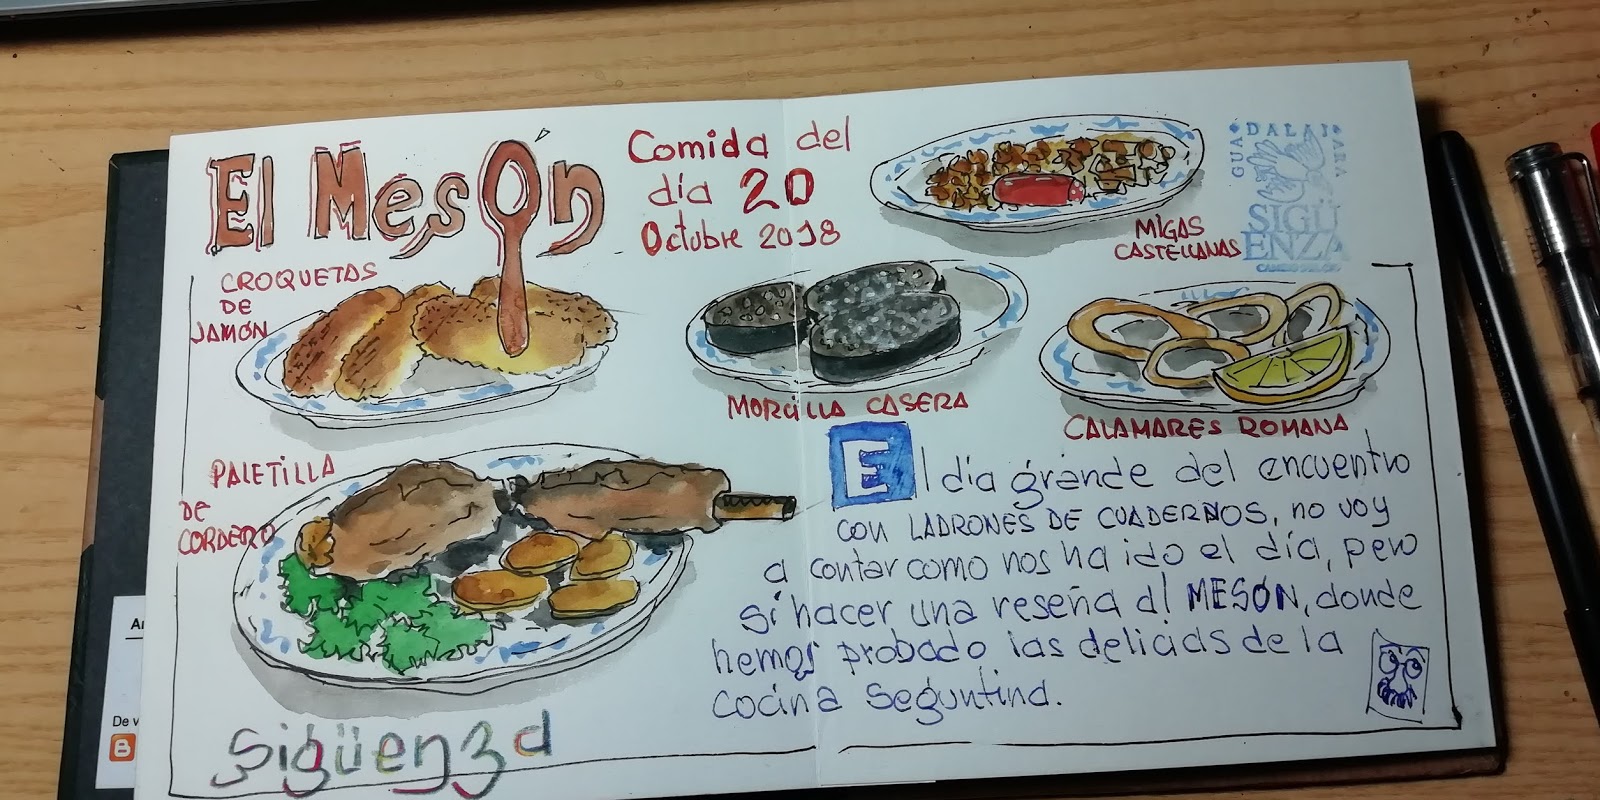 El Mesón
Comida del
día 20
Octubre 2018
MIGAS
CASTELLANAS
GUADALAJARA
SIGÜ
ENZA
CROQUETAS
DE
JAMÓN
MORCILLA CASERA
CALAMARES ROMANA
PALETILLA
DE
CORDERO
El día grande del encuentro
con LADRONES DE CUADERNOS, no voy
a contar como nos ha ido el día, pero
si hacer una reseña al MESÓN, donde
hemos probado las delicias de la
cocina seguntina.
Sigüenza
De v